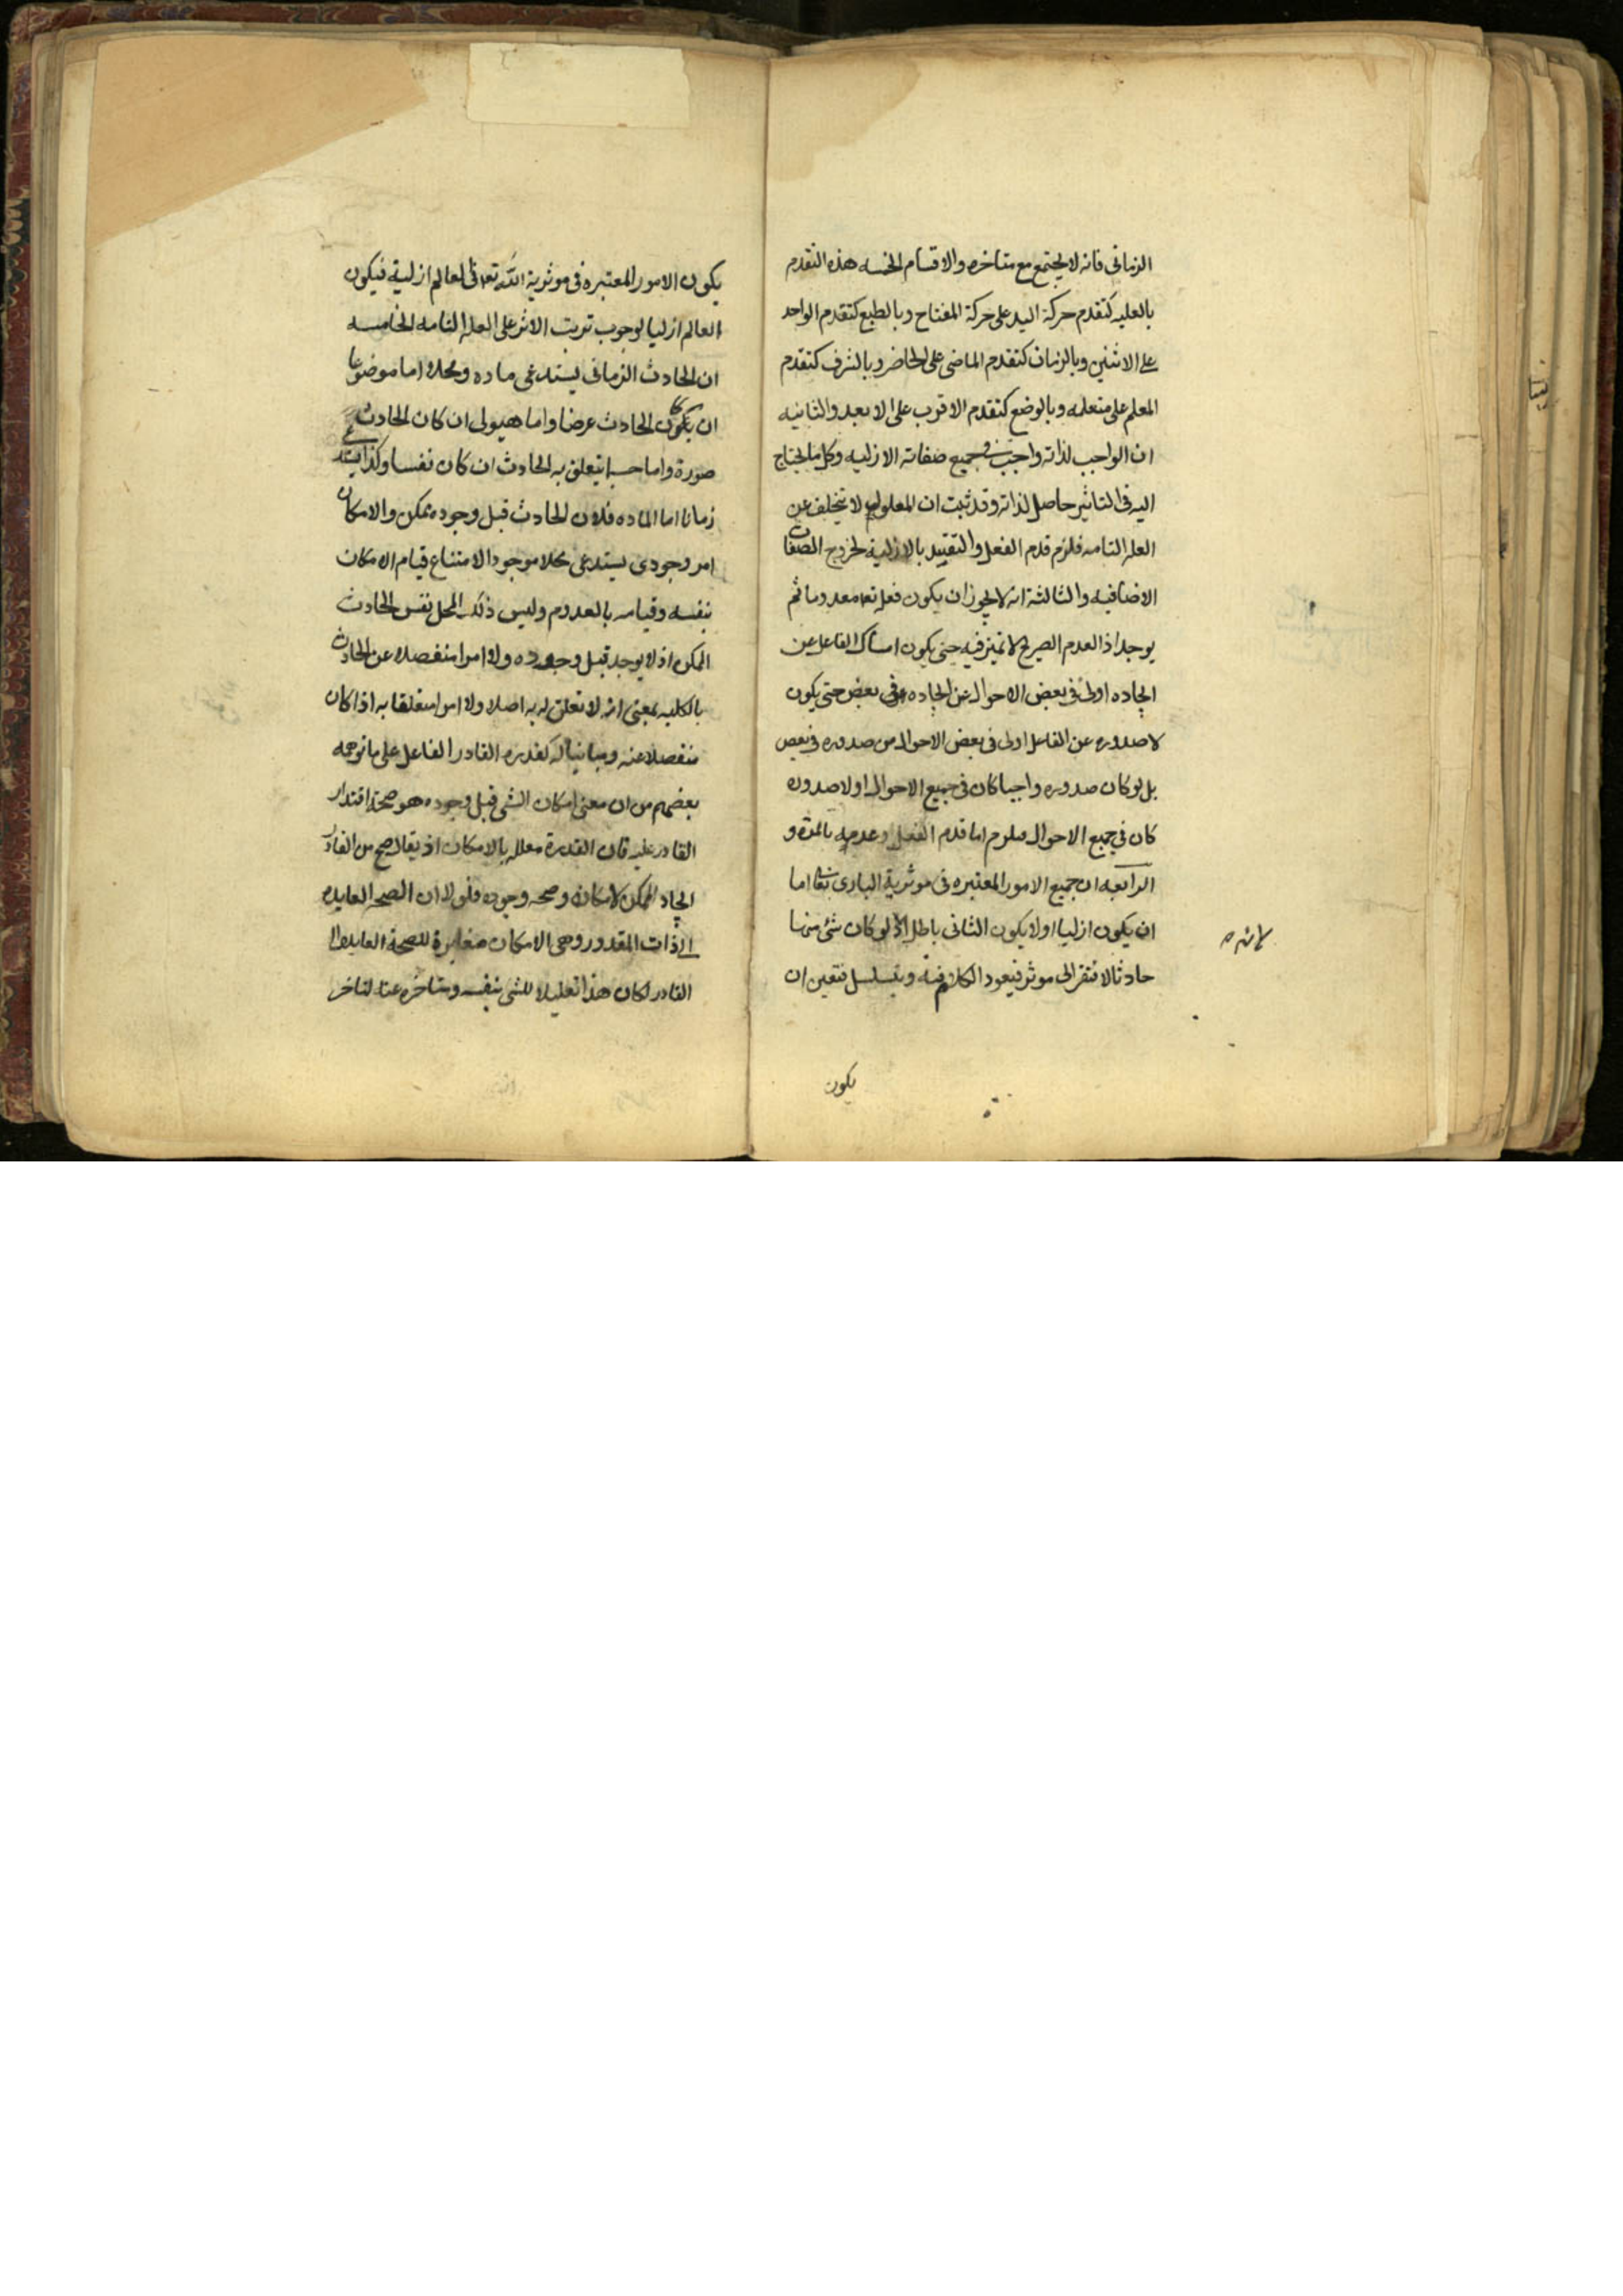 الزمانى فانه لا يجتمع مع متاخره والاقسام الخمسه هذه التقدم
بالعليه كتقدم حركة اليد على حركة المفتاح وبالطبع كتقدم الواحد
على الاثنين وبالزمان كتقدم الماضى على الحاضر وبالشرف كتقدم
المعلم على متعلمه وبالوضع كتقدم الاقرب على الابعد والثانيه
ان الواجب لذاته واجب فى جميع صفاته الازليه وكل ما يحتاج
اليه فى التاثير حاصل لذاته وقد ثبت ان المعلول لا يتخلف عن
العله التامه فلزم قدم الفعل والتقييد بالازلية لخروج الصفات
الاضافيه والثالثة انه لا يجوز ان يكون فعله تعه معدوما ثم
يوجد اذ العدم الصريح لا تميز فيه حتى يكون امساك الفاعل عن
ايجاده اولى فى بعض الاحوال عن ايجاده فى بعض حتى يكون
لا صدوره عن الفاعل اولى فى بعض الاحوال من صدوره فى بعض
بل لو كان صدوره واجبا كان فى جميع الاحوال او لا صدوره
كان فى جميع الاحوال فيلزم اما قدم الفعل وعدمه بالمرة و
الرابعه ان جميع الامور المعتبره فى موثرية البارى تعالى اما
ان يكون ازليا او لا يكون الثانى باطل لانه لو كان شئ منها
حادثا لافتقر الى موثر فيعود الكلام فيه ويتسلسل فتعين ان
يكون
يكون الامور المعتبره فى موثرية الله تعه فى العالم ازلية فيكون
العالم ازليا لوجوب ترتب الاثر على العله التامه الخامسه
ان الحادث الزمانى يستدعى ماده ومحلا اما موضوعا
ان كان الحادث عرضا واما هيولى ان كان الحادث
صورة واما جسما يتعلق به الحادث ان كان نفسا وكذا يستدعى
زمانا اما الماده فلان الحادث قبل وجوده ممكن والامكان
امر وجودى يستدعى محلا موجودا لامتناع قيام الامكان
بنفسه وقيامه بالمعدوم وليس ذلك المحل نفس الحادث
الممكن اذ لا يوجد قبل وجوده ولا امرا منفصلا عن الحادث
بالكليه بمعنى انه لا تعلق له به اصلا ولا امرا متعلقا به اذا كان
منفصلا عنه ومباينا له كقدرة القادر الفاعل على ما توهمه
بعضهم من ان معنى امكان الشئ قبل وجوده هو صحة اقتدار
القادر عليه فان القدرة معلله بالامكان اذ يقال صح من القادر
ايجاد الممكن لامكانه وصحه وجوده فلولا ان الصحه العايده
الى ذات المقدور وهى الامكان مغايرة للصحة العايده الى
القادر لكان هذا تعليلا للشئ بنفسه ومتاخره عنه لتاخر